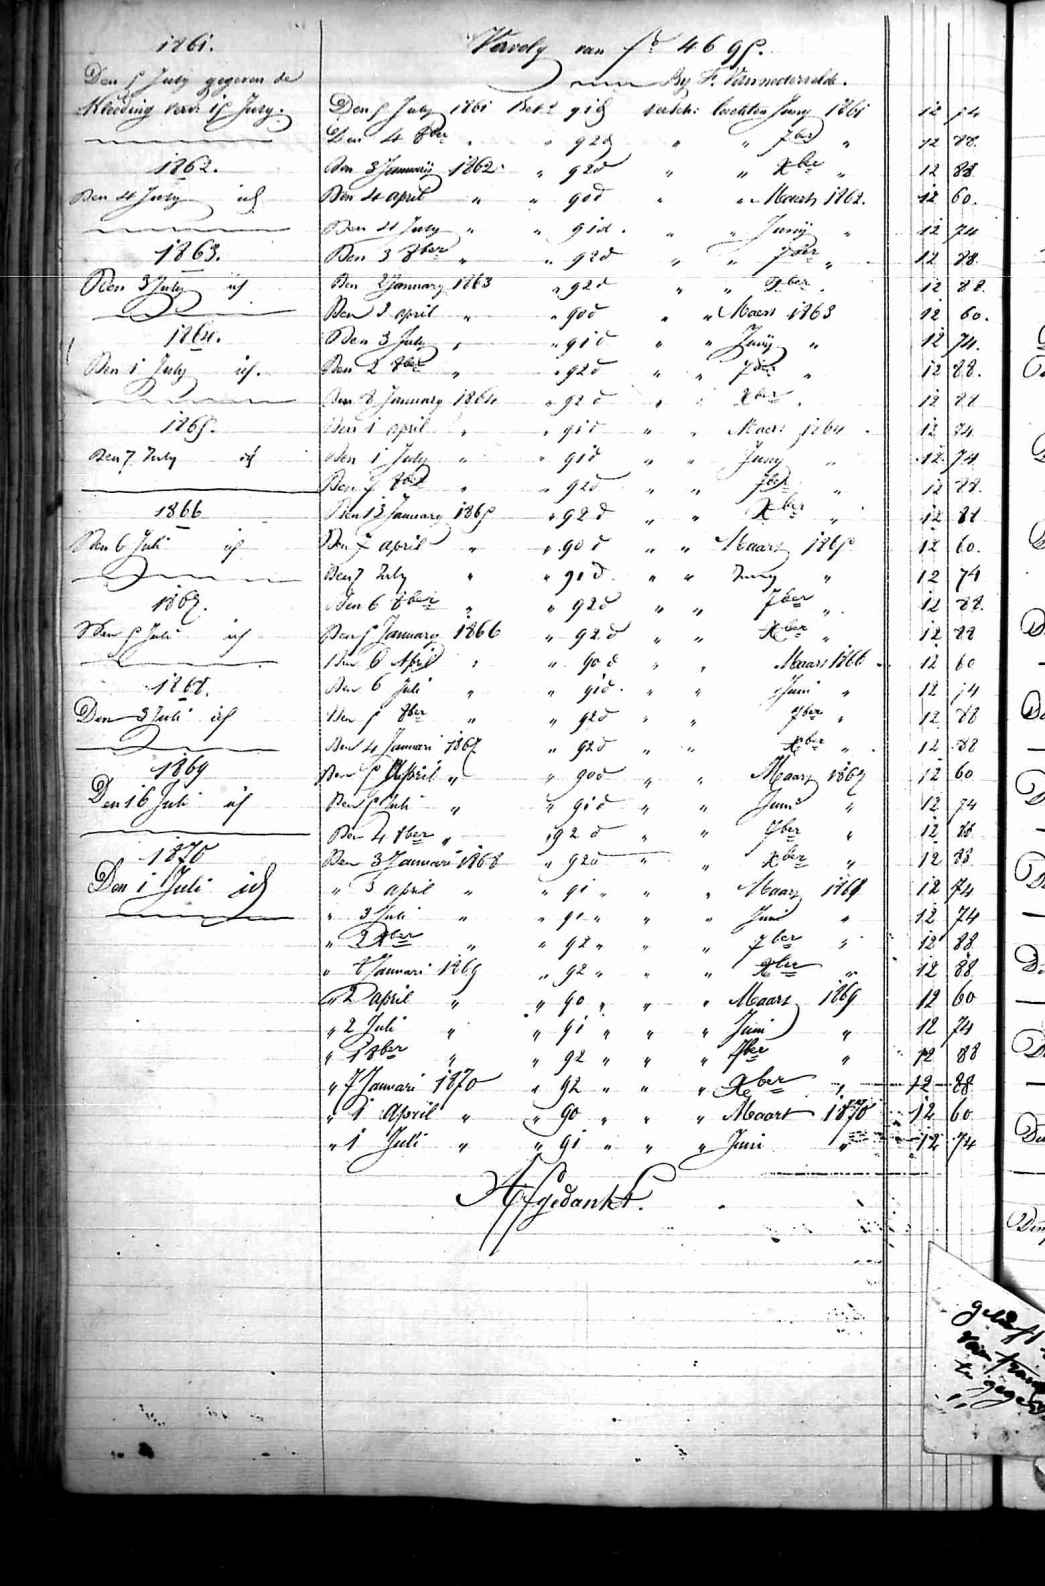 1861.
Den 5 July gegeven de
Kleeding voor 1/2 Jury.
1862.
Den 4 July id
1863.
Den 3 July id
1864.
Den 1 July id.
1865.
Den 7 July id
1866
Den 6 Juli id
1867.
Den 5 Juli id
1868.
Den 3 Juli id
1869
Den 16 Juli id
1870
Den 1 Juli id
Vervolg van fo 46
By F. Vannedervelde.
Den 5 July 1861 91 d Juny 1861 12 74
Den 4 8ber " " 92 d " " 7ber " 12 88.
Den 3 Januarij 1862 " 92 d " " Xber " 12 88
Den 4 april " " 90 d " " Maart 1862. 12 60.
Den 4 July " " 91 d. " " Junij " 12 74
Den 3 8ber " " 92 d " " 7ber " 12 88.
Den 2 January 1863 " 92 d " " Xber " 12 88.
Den 3 april " 90 d " " Maart 1863 12 60.
Den 3 July " " 91 d " " Junij " 12 74.
Den 2 8ber " " 92 d " " 7ber " 12 88.
Den 8 January 1864 " 92 d " " Xber " 12 88
Den 1 april " " 91 d " " Maart 1864 12 74
Den 1 July " " 91 d " " Juny " 12 74
Den 7 8ber " " 92 d " " 7ber " 12 88.
Den 13 January 1865 " 92 d " " Xber " 12 88
Den 7 april " " 90 d " " Maart 1865 12 60.
Den 7 July " " 91 d. " " Juny " 12 74
Den 6 8ber " " 92 d " " 7ber " 12 88.
Den 5 January 1866 " 92 d " " Xber " 12 88
Den 6 April " " 90 d " " Maart 1866 12 60
Den 6 Juli " " 91 d. " " Juni " 12 74
Den 5 8ber " " 92 d " " 7ber " 12 88
Den 4 Januari 1867 " 92 d " " Xber " 12 88
Den 5 April " " 90 d " " Maart 1867 12 60
Den 5 Juli " " 91 d " " Juni " 12 74
Den 4 8ber " " 92 d " " 7ber " 12 88
Den 3 Januari 1868 " 92 d " " Xber " 12 88
" 3 april " " 91 " " " Maart 1868 12 74
" 3 Juli " " 91 " " " Juni " 12 74
" 2 8ber " " 92 " " " 7ber " 12 88
" 8 Januari 1869 " 92 " " " Xber " 12 88
" 2 april " " 90 " " " Maart 1869 12 60
" 2 Juli " " 91 " " " Juni " 12 74
" 1 8ber " " 92 " " " 7ber " 12 88
" 7 Januari 1870 " 92 " " " Xber " 12 88
" 1 April " " 90 " " " Maart 1870 12 60
" 1 Juli " " 91 " " " Juni " 12 74
Afgedankt.